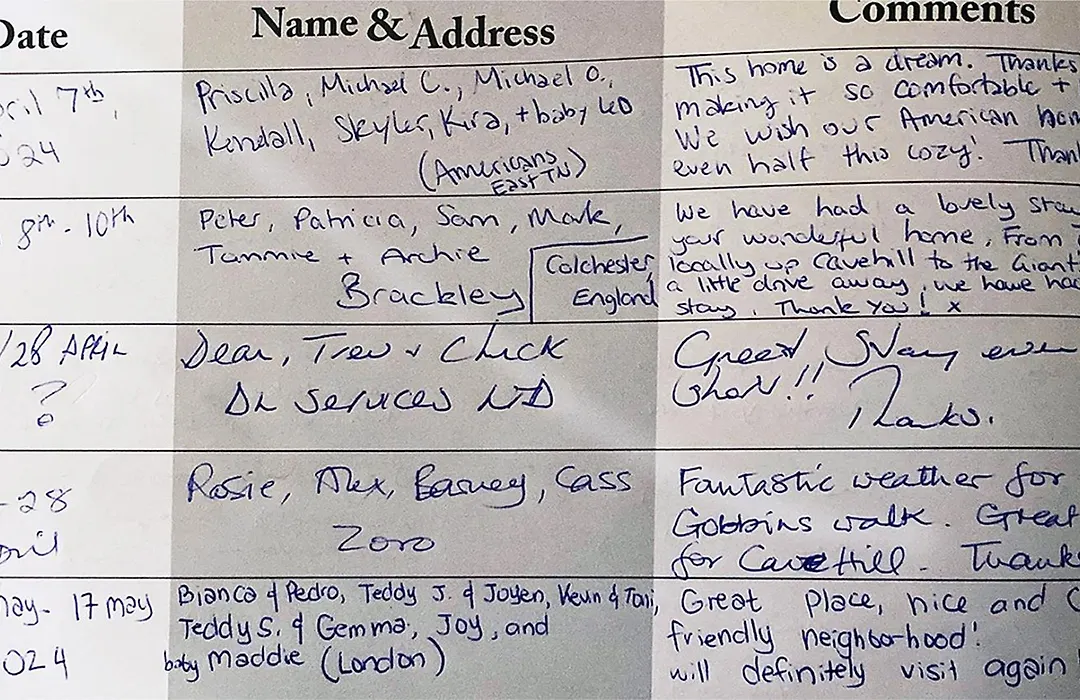 Date Name & Address Comments
ril 7th,
024
Priscilla, Michael C., Michael O.,
Kendall, Skyler, Kira, + baby LEO
(Americans
East TN)
This home is a dream. Thanks
making it so comfortable +
We wish our American hom
even half this cozy! Thank
8th - 10th
Peter, Patricia, Sam, Mark,
Tammie + Archie
Brackley
Colchester,
England
We have had a lovely stay
your wonderful home, From
locally up Cavehill to the Giant
a little drive away, we have had
stay. Thank You! x
/28 APRIL
?
Dean, Trev + Chick
DL Services
Great Stay even
Short!!
Thanks.
-28
pril
Rosie, Alex, Barney, Cass
Zoro
Fantastic weather for
Gobbins walk. Great
for Cave Hill. Thanks
may - 17 may
024
Bianca & Pedro, Teddy J. & Joyen, Kevin & Toni,
Teddy S. & Gemma, Joy, and
baby Maddie (London)
Great place, nice and
friendly neighborhood!
will definitely visit again